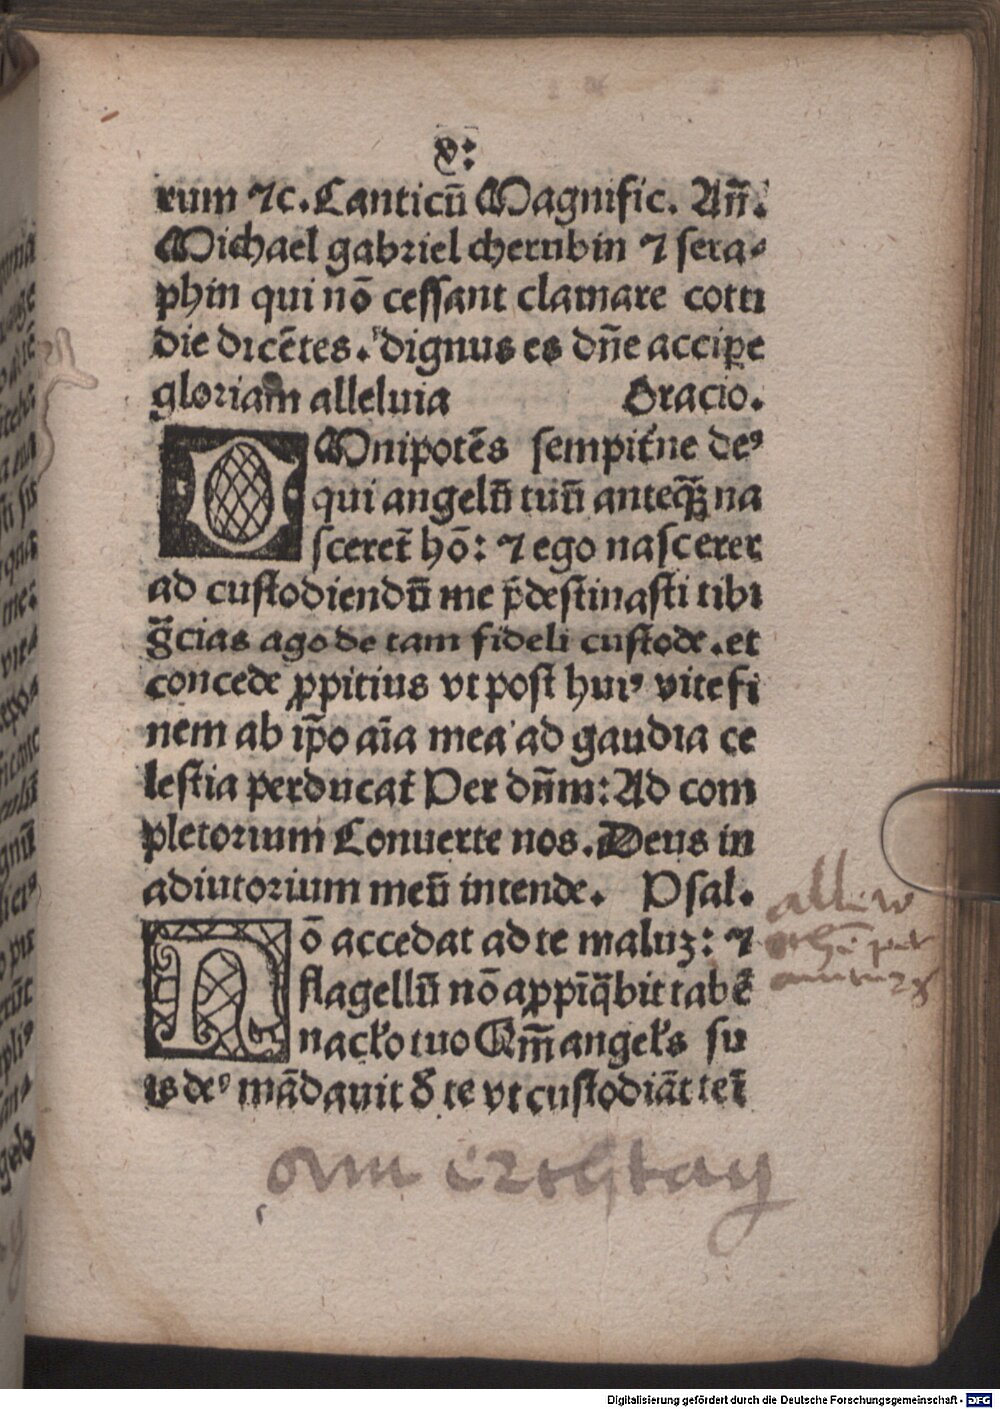 v:
rum ⁊c. Canticū Magnific. Añ.
Michael gabriel cherubin ⁊ sera⸗
phin qui nō cessant clamare cotti
die dicētes. dignus es dñe accipe
gloriam alleluia Oracio.
OMnipotēs sempit̄ne deꝰ
qui angelū tuū anteqꝫ na
sceret̄ hō: ⁊ ego nascerer
ad custodiendū me p̄destinasti tibi
gr̄cias ago de tam fideli custode. et
concede ꝓpitius vt post huiꝰ vite fi
nem ab ip̄o aīa mea ad gaudia ce
lestia perducat̄ Per dn̄m: Ad com
pletorium Conuerte nos. Deus in
adiutorium meū intende. Psal.
Nō accedat ad te maluꝫ: ⁊
flagellū nō appīq̄bit tabē
nacƚo tuo Qm̄ angeƚs su
is deꝰ mādauit ď te vt custodiāt te ī